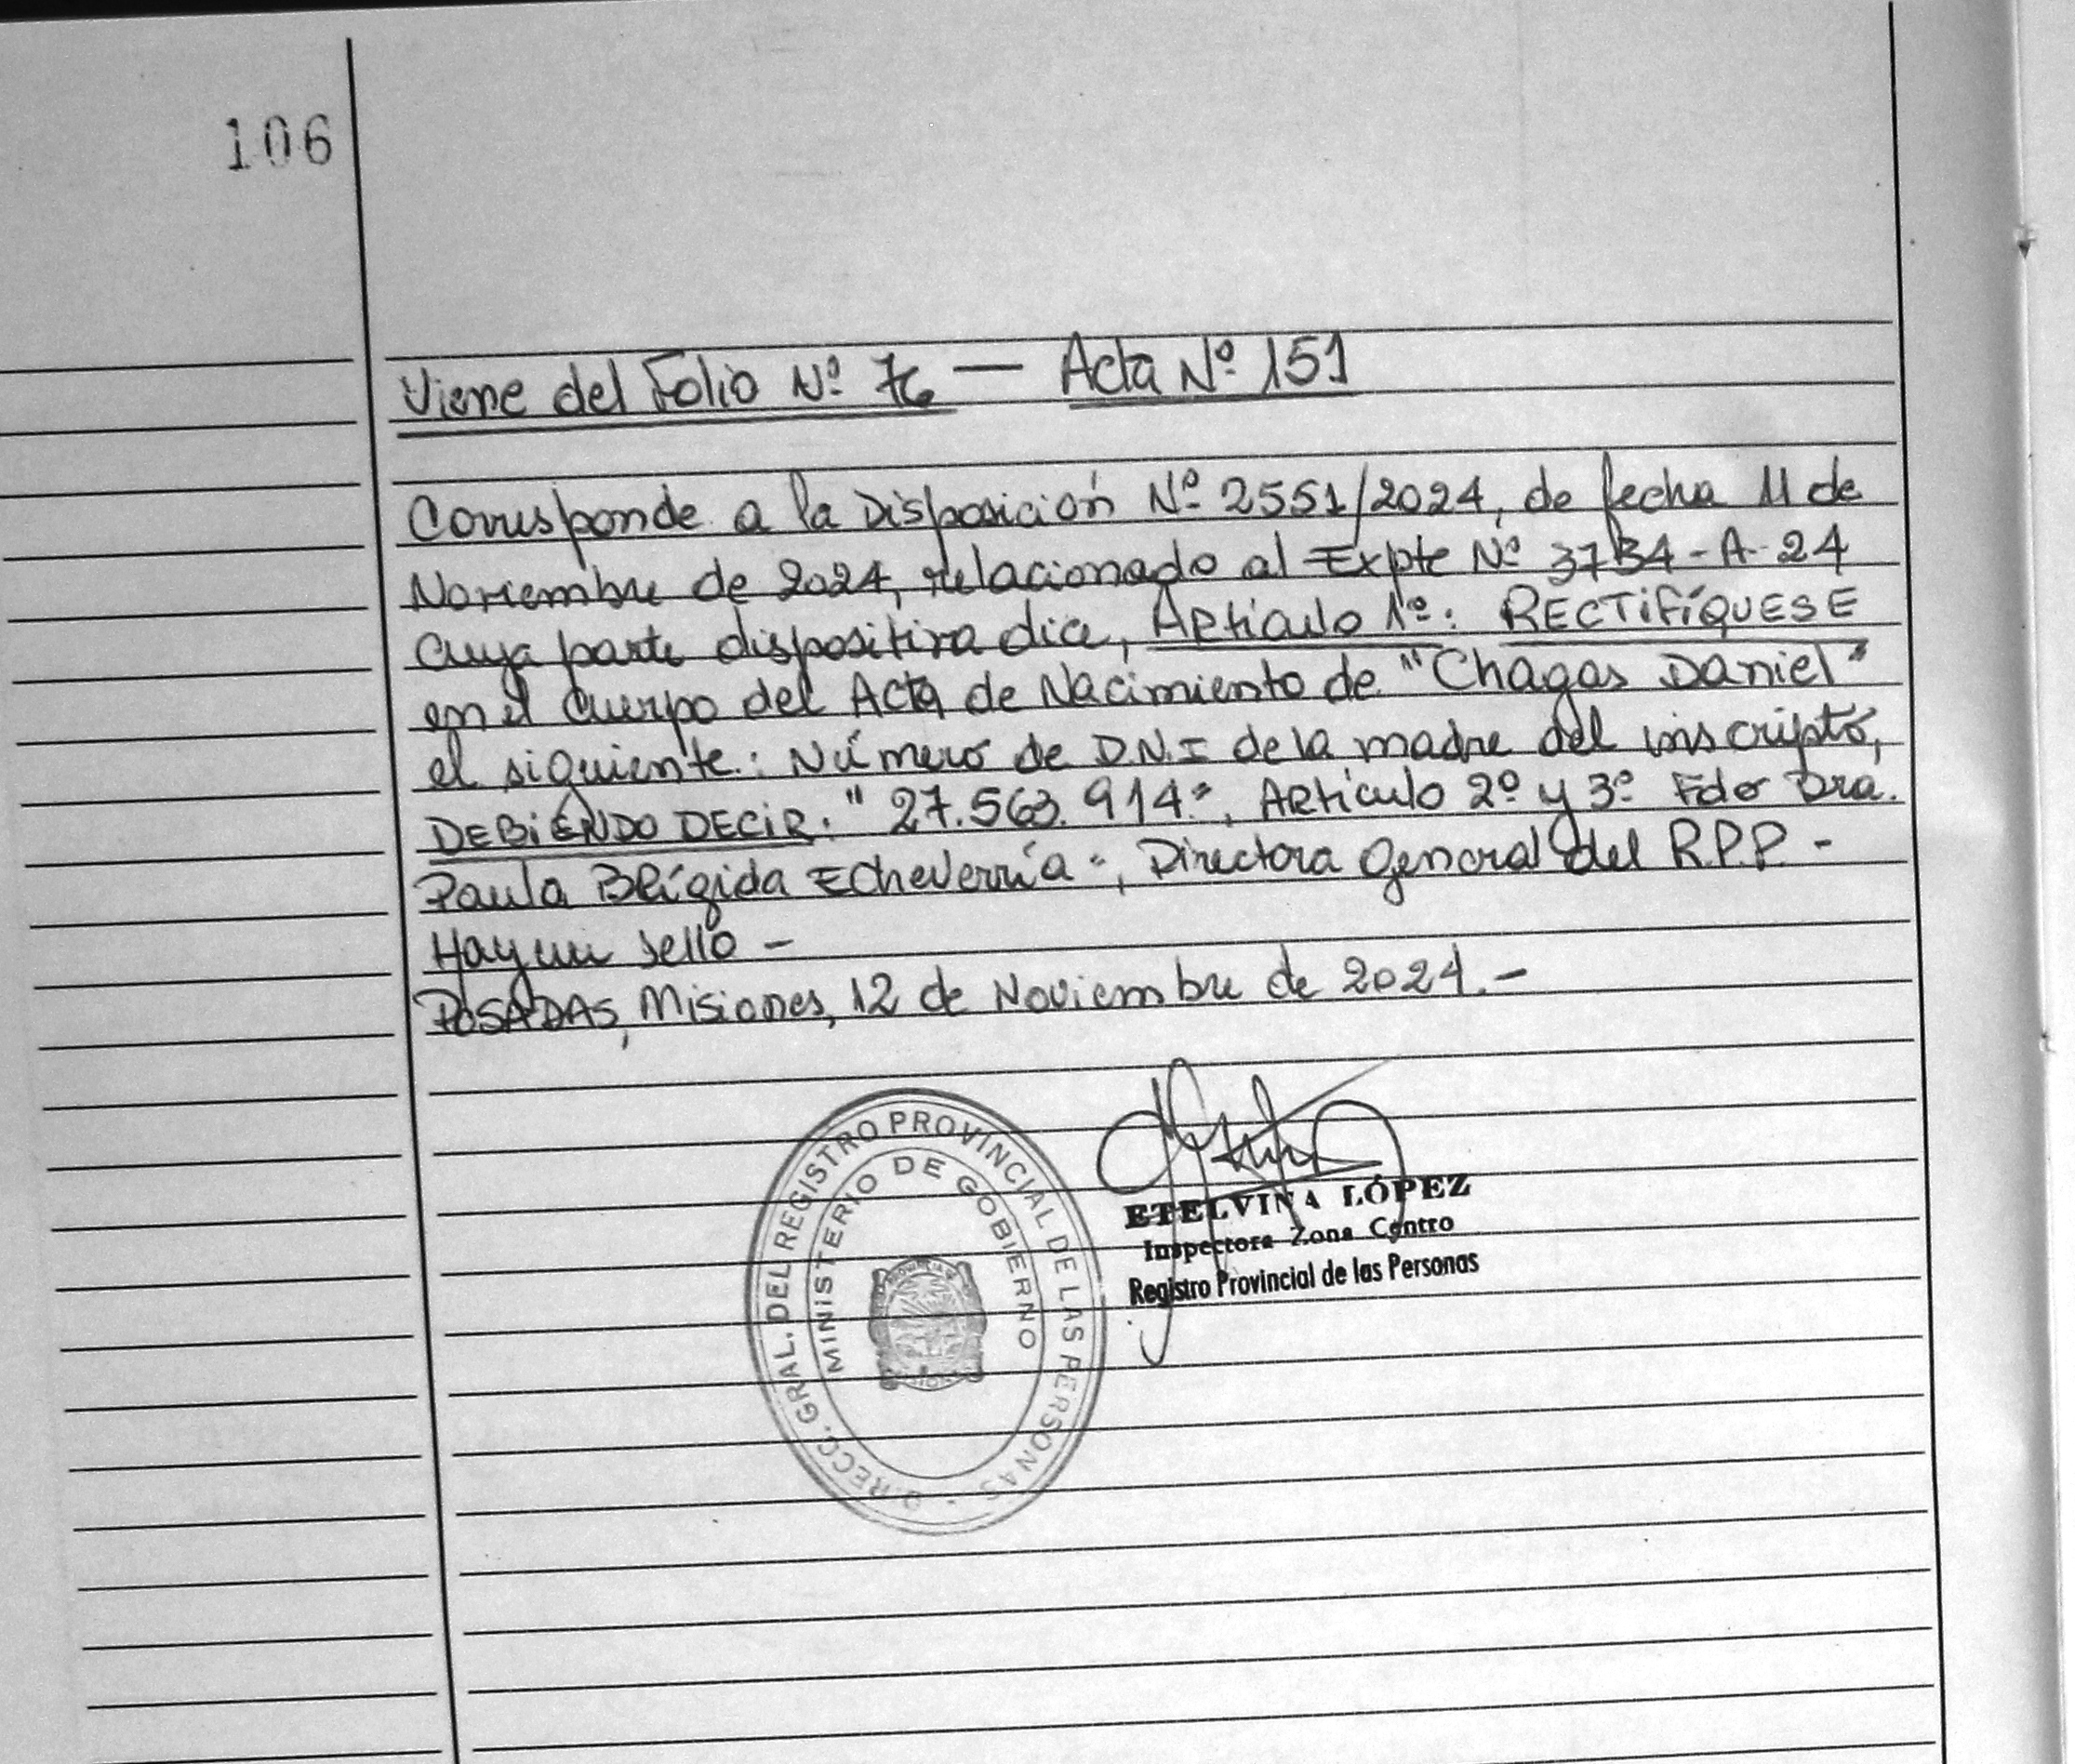 106
Viene del Folio Nº 76 — Acta Nº 151
Corresponde a la Disposición Nº 2551/2024, de fecha 11 de
Noviembre de 2024, relacionado al Expte Nº 3734-A-24
cuya parte dispositiva dice, Artículo 1º: RECTIFÍQUESE
en el cuerpo del Acta de Nacimiento de "Chagas Daniel"
el siguiente: Número de D.N.I de la madre del inscripto,
DEBIENDO DECIR: "27.563.914", Artículo 2º y 3º Fdo Dra.
Paula Brígida Echeverría-, Directora General del R.P.P. -
Hay un sello -
POSADAS, Misiones, 12 de Noviembre de 2024.-
DIRECC. GRAL. DEL REGISTRO PROVINCIAL DE LAS PERSONAS
MINISTERIO DE GOBIERNO
ETELVINA LÓPEZ
Inspectora Zona Centro
Registro Provincial de las Personas